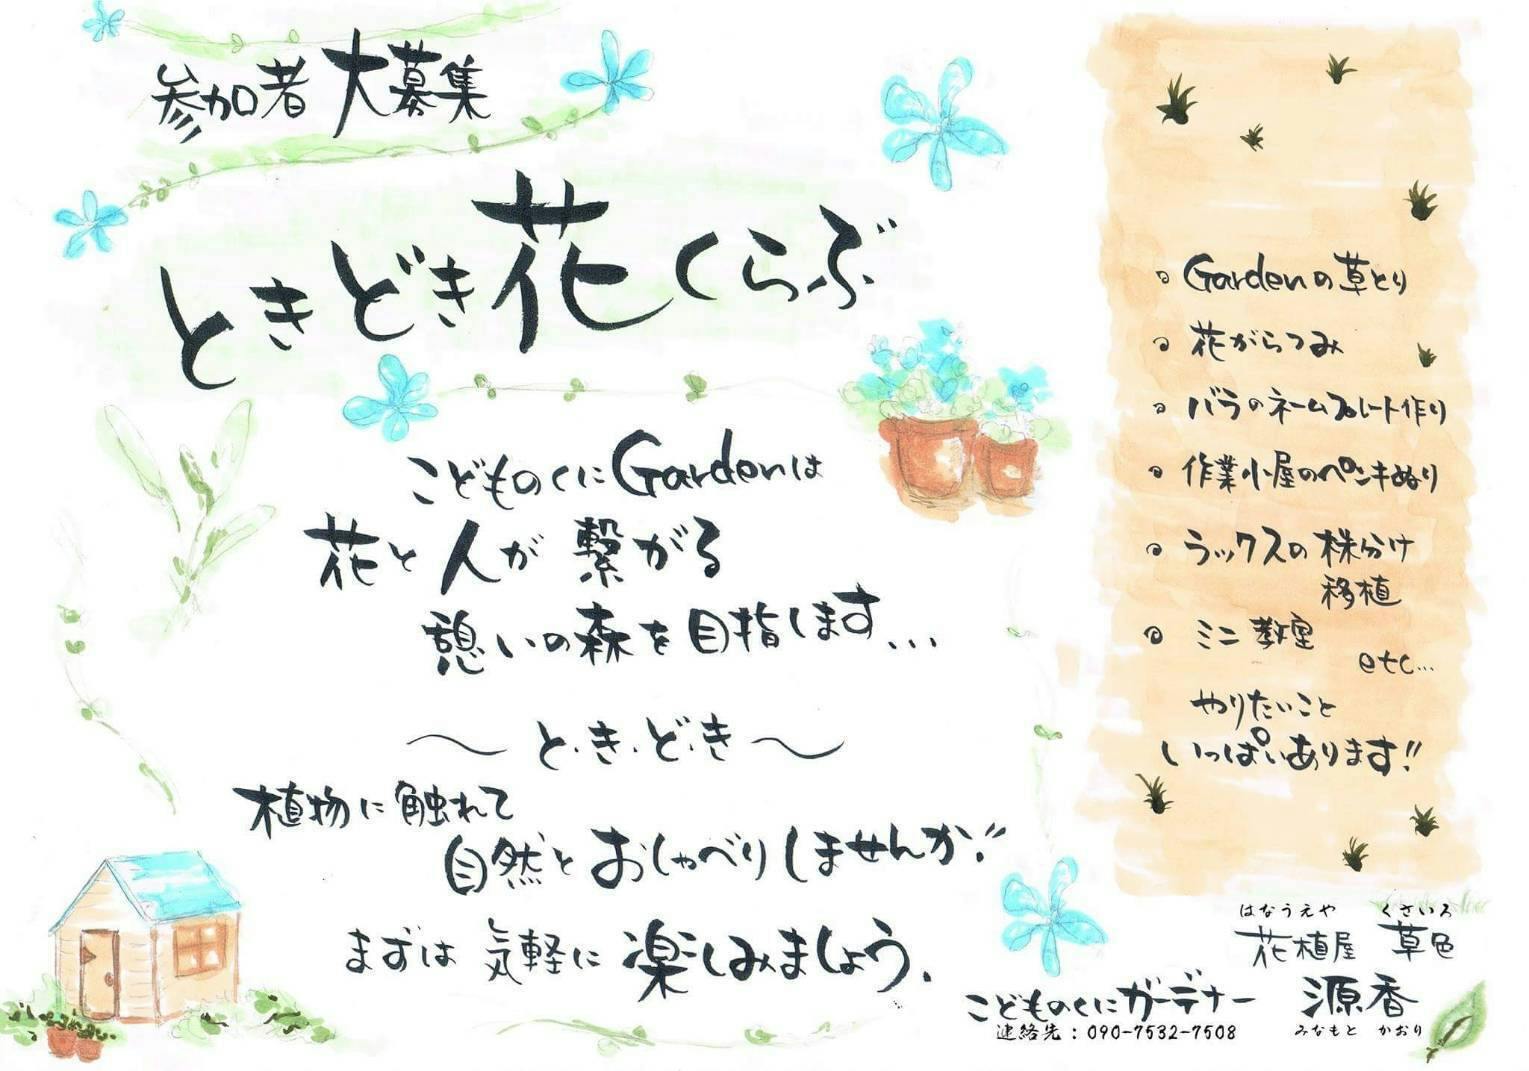 参加者大募集
ときどき花くらぶ
こどものくにGardenは
花と人が繋がる
憩いの森を目指します...
〜と・き・ど・き〜
植物に触れて
自然とおしゃべりしませんか!!
まずは気軽に楽しみましょう.
Gardenの草とり
花がらつみ
バラのネームプレート作り
作業小屋のペンキぬり
ラックスの株分け
移植
ミニ教室
etc...
やりたいこと
いっぱいあります!!
はなうえや くさいろ
花植屋 草色
こどものくにガーデナー 源香
みなもと かおり
連絡先:090-7532-7508